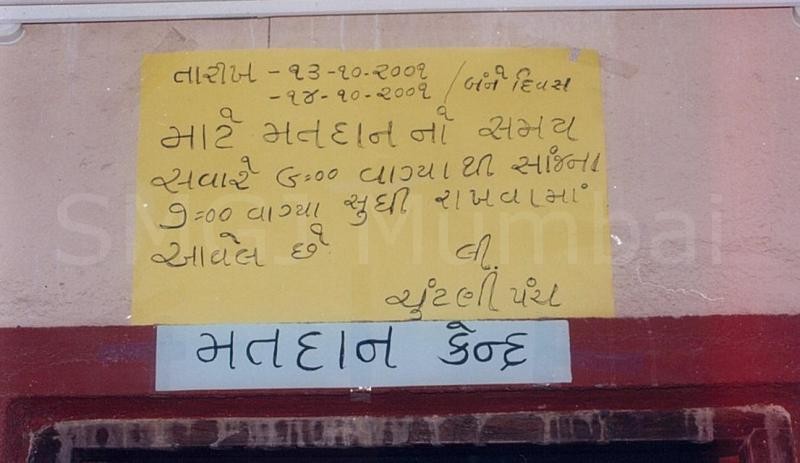 તારીખ - ૧૩-૧૦-૨૦૦૧
- ૧૪-૧૦-૨૦૦૧ / બંને દિવસ
માટે મતદાન નો સમય
સવારે ૯=૦૦ વાગ્યા થી સાંજના
૭=૦૦ વાગ્યા સુધી રાખવામાં
આવેલ છે લી.
ચુંટણી પંચ
મતદાન કેન્દ્ર
SMGJ Mumbai